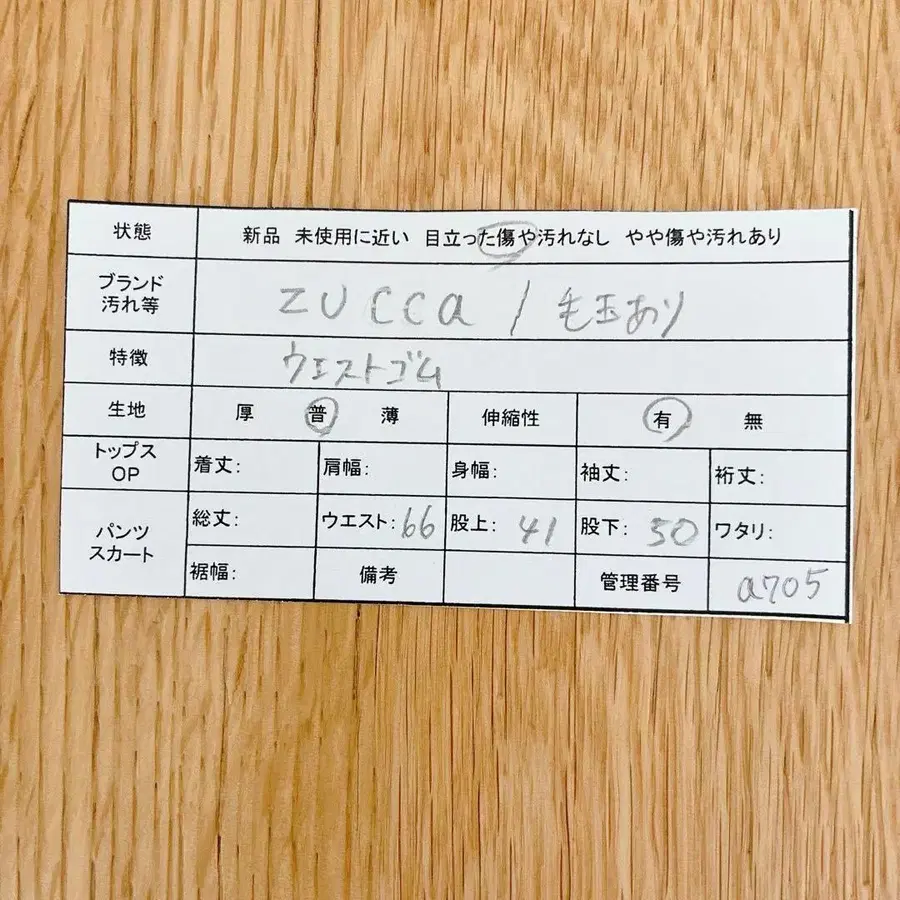 状態 新品 未使用に近い 目立った傷や汚れなし やや傷や汚れあり
ブランド
汚れ等 ZUCCa / 毛玉あり
特徴 ウエストゴム
生地 厚 普 薄 伸縮性 有 無
トップス
OP 着丈: 肩幅: 身幅: 袖丈: 裄丈:
パンツ
スカート 総丈: ウエスト:66 股上: 41 股下: 50 ワタリ:
裾幅: 備考 管理番号 a705